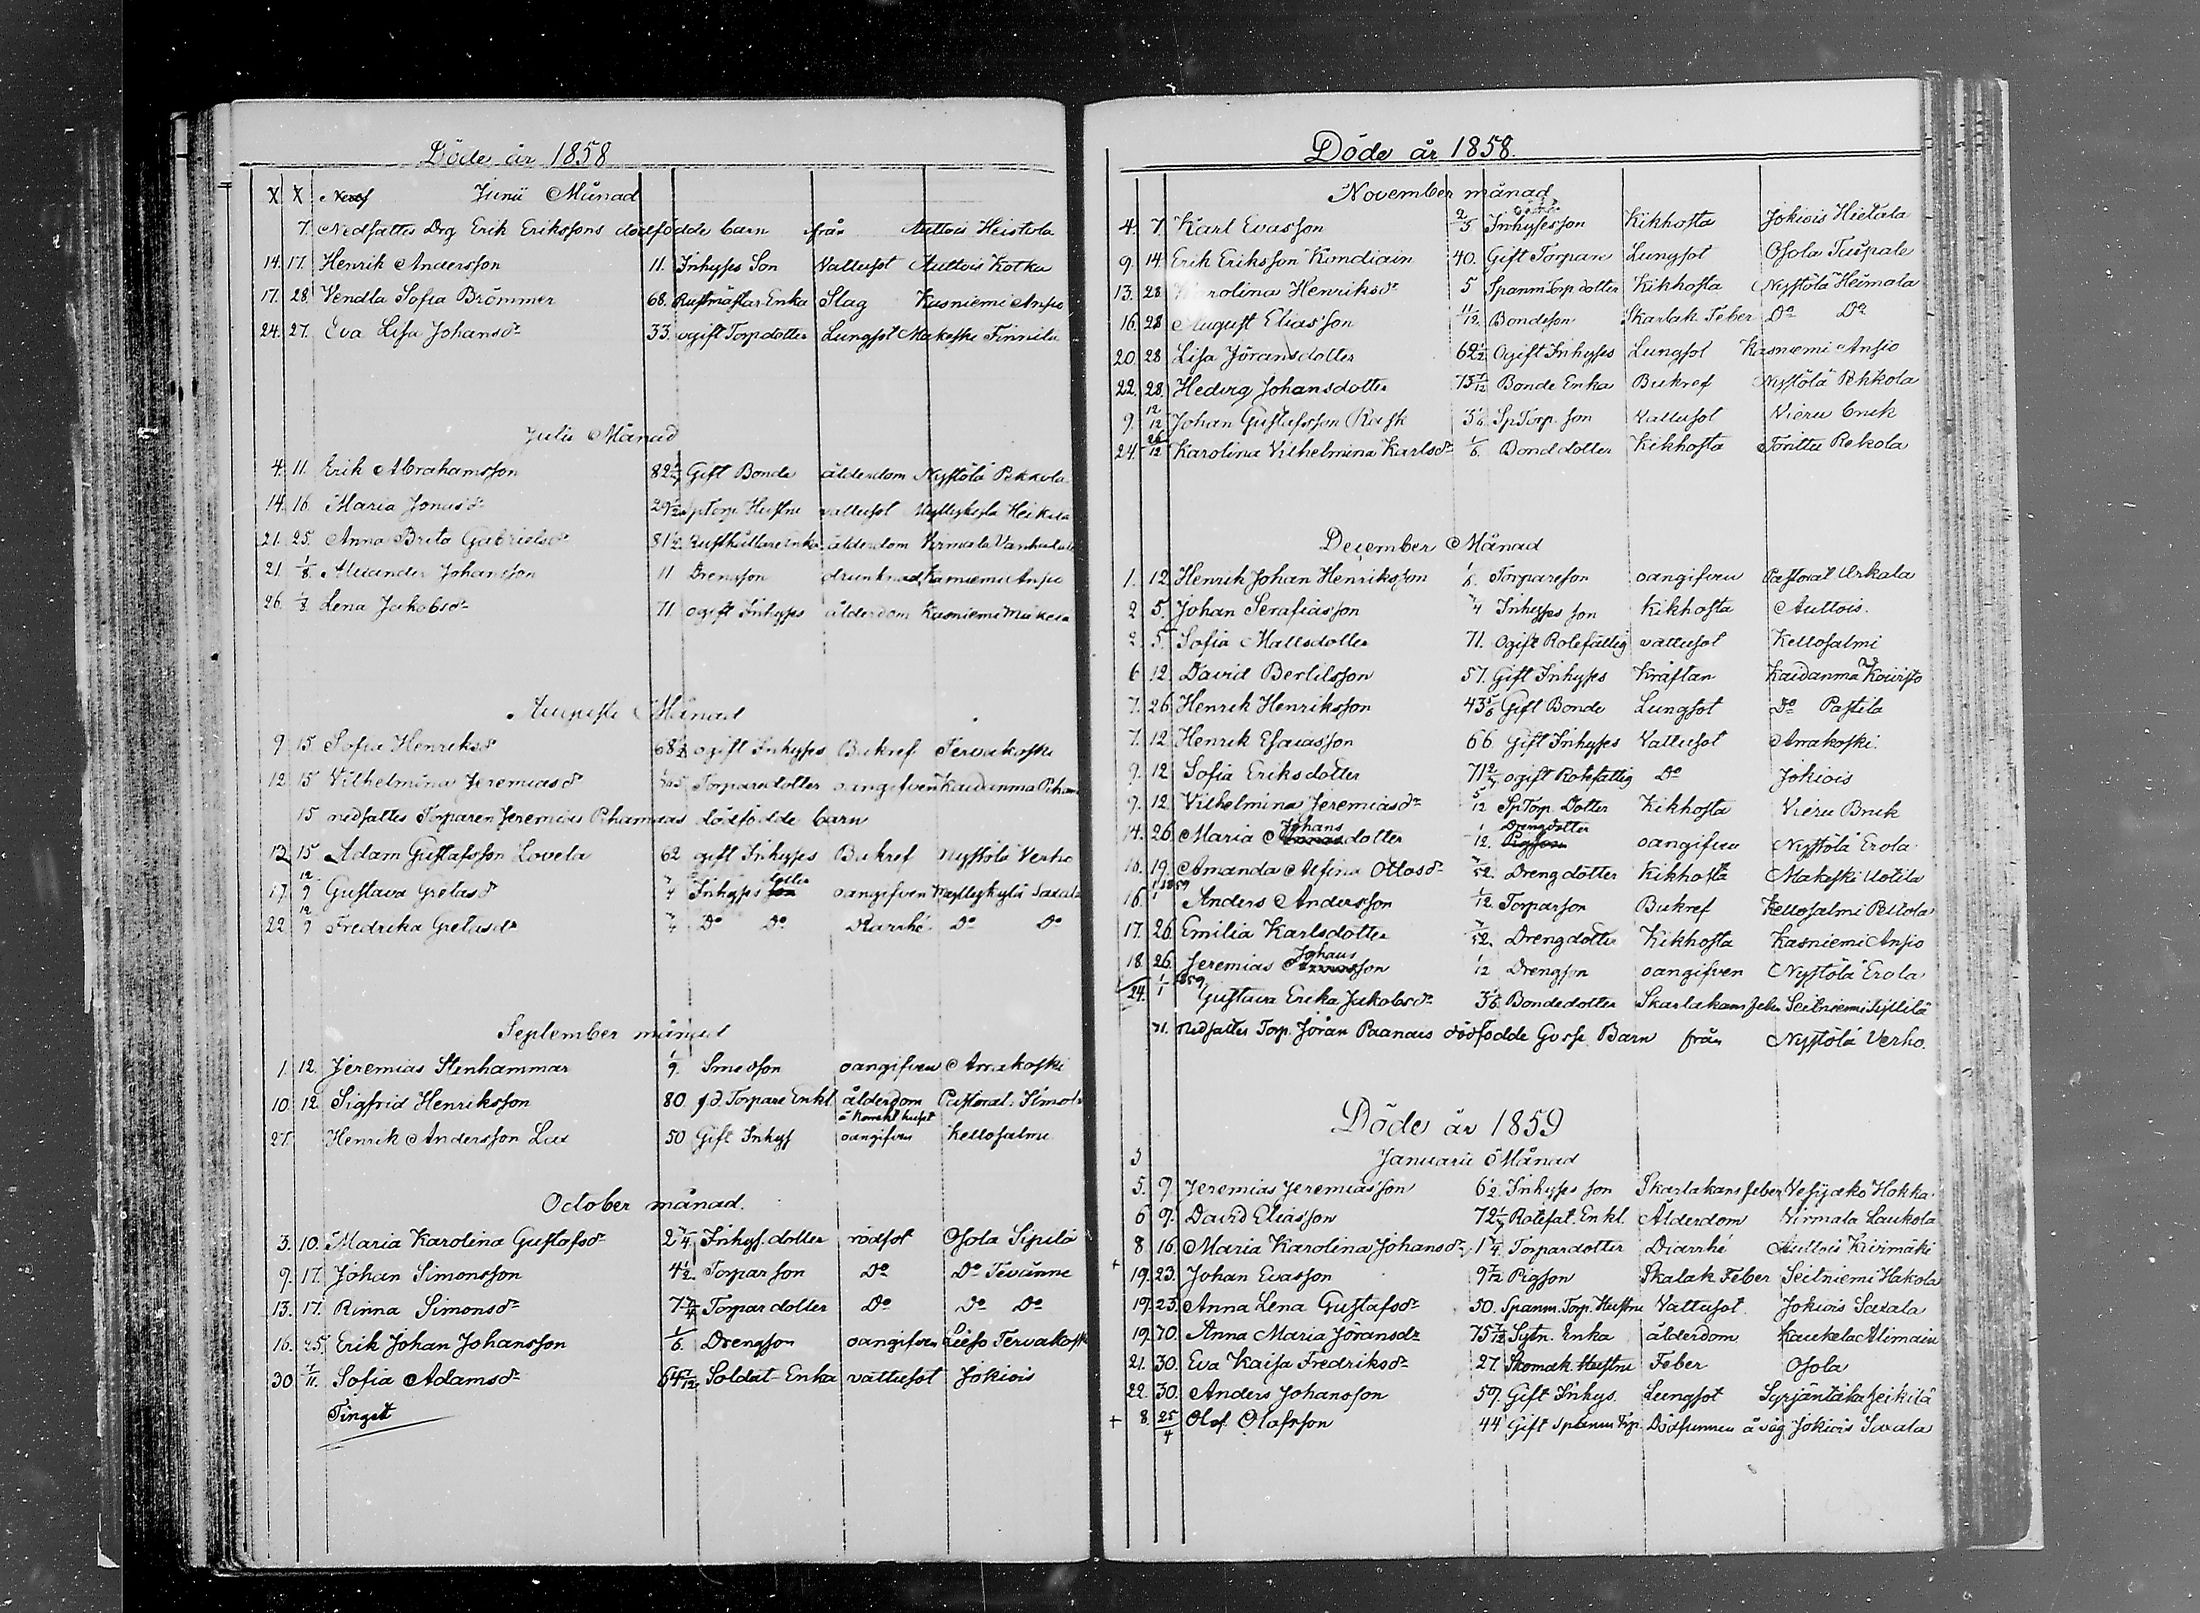 Döde år 1858
X X Junii Månad
7. Nedsattes Drg Erik Erikssons dödfödde barn från Auttois Heistola
14. 17. Henrik Andersson 11. Inhyses Son Vattusot Auttois Kotka
17. 28. Vendla Sofia Brömmer 68. Rustmästar Enka Slag Kasniemi Ansio
24. 27. Eva Lisa Johansdr 33. ogift Torpdotter Lungsot Makeski Finnilu
Julii Månad
4. 11. Erik Abrahamsson 82 Gift Bonde ålderdom Nystölä Pekkola
14. 16. Maria Jonasdr 29½ SpTorp Hustru vattusot Myllykylä Heikila
21. 25. Anna Brita Gabrielsdr 81½ Rusthållare Enka ålderdom Virmala
21. 1/8. Alexander Johansson 11 Drengson drunknad Kasniemi Ansio
26. 1/8. Lena Jakobsdr 71 ogift Inhyses ålderdom Kasniemi Mäkelä
Augusti Månad
9 15 Sofia Henriksdr 68½ ogift Inhyses Bukref Tervakoski
12 15 Vilhelmina Jeremiasdr Torparedotter oangifven Kaidanma
15 nedsattes Torparen Jeremias dödfödde barn
12 15 Adam Gustafsson Lovela 62 gift Inhyses Bukref Nystölä Verho
17. 12/9 Gustava Gretasdr Inhyses dotter oangifven Myllykylä Saxala
22 12/9 Fredrika Gretasdr Do Do Diarrhé Do Do
September månad
1. 12. Jeremias Stenhammar 1/9. Smedson oangifven Arrakoski
10. 12. Sigfrid Henriksson 80 f.d. Torpare Enkl. ålderdom Pastoral. Simola
27. Henrik Andersson Lax 50 Gift Inhys oangifven Kellosalmi
October månad.
3. 10. Maria Karolina Gustafsdr 2 Inhys. dotter rödsot Osola Sipilä
9. 17. Johan Simonsson 4½. Torpar son Do Do
13. 17. Rinna Simonsdr 7 Torpar dotter Do Do Do
16. 25. Erik Johan Johansson 1/6. Drengson oangifven Tervakoski
30 1/11. Sofia Adamsdr 64 Soldat Enka vattusot Jokiois
Tinget
Döde år 1858.
November månad
4. 7. Karl Evasson 2/5 Inhysesson Kikhosta Jokiois Hietala
9. 14. Erik Eriksson Kondiain 40. Gift Torpare Lungsot Osola Tuspala
13. 28. Karolina Henriksdr 5 Spanm Torp dotter Kikhosta Nystölä Heimola
16. 28 August Eliasson 11/12. Bondeson Skarlak. Feber Do Do
20 28 Lisa Jöransdotter 62½ Ogift Inhyses Lungsot Kasniemi Ansio
22. 28. Hedvig Johansdotter 73 Bonde Enka Bukref Nystölä Pekkola
9. 12/12 Johan Gustafsson Rask 3 SpTorp. son Vattusot Vieru bruk
24. 26/12 Karolina Vilhelmina Karlsdr 1/6. Bonddotter Kikhosta Toritta Rekola
December Månad
1. 12. Henrik Johan Henriksson 1/6. Torpareson oangifven Pastoral Arkala
2 5. Johan Serafiasson Inhyses son Kikhosta Auttois.
2. 5. Sofia Mattsdotter 71. Ogift Rotefattig vattusot Kellosalmi
6 12. David Bertilsson 57. Gift Inhyses Kräftan Kaidanma Koivisto
7. 26. Henrik Henriksson 43 5/6 Gift Bonde Lungsot Do Pastila
7. 12. Henrik Esaiasson 66. Gift Inhyses Vattusot Arrakoski.
9. 12. Sofia Eriksdotter 71 ogift Rotefattig Do Jokiois
9. 12. Vilhelmina Jeremiasdr 5/12 SpTorp. Dotter Kikhosta Vieru Bruk
14. 26. Maria Johans dotter 1/12. Drengdotter oangifven Nystölä Erola
16. 19. Amanda Alfina Ottosdr Drengdotter Kikhosta Makeski Uotila
16. 1/1 1859 Anders Andersson 1/12. Torparson Bukref Kellosalmi
17. 26. Emilia Karlsdotter Drengdotter Kikhosta Kasniemi Ansio
18. 26. Jeremias Johans son 1/12 Drengson oangifven Nystölä Erola
24. 1/1 1859. Gustava Erika Jakobsdr 3 Bondedotter Skarlakans feber Seitniemi
31. Nedsattes Torp. Jöran Paanais dödfödde Gosse Barn från Nystölä Verho.
Döde år 1859
3 Januarii Månad
5. 9. Jeremias Jeremiasson 6½. Inhyses son Skarlakans feber Vesijako Hokka
6 9. David Eliasson 72 Rotefat. Enkl. Ålderdom Virmala Laukola
8 16. Maria Karolina Johansdr 1 Torpardotter Diarrhé Auttois Kivimäki
+ 19. 23. Johan Evasson 9 Pigson Skalak Feber Seitniemi Hakola
19. 23. Anna Lena Gustafsdr 50. Spanm. Torp. Hustru Vattusot. Jokiois Saxala
19. 70. Anna Maria Jöransdr 75 Sytn. Enka ålderdom Kaukela
21. 30. Eva Kaisa Fredriksdr 27. Skomak. Hustru Feber Osola
22. 30. Anders Johansson 59. Gift Inhys. Lungsot Syrjäntaka Heikilä
+ 8. 25/4 Olof Olofsson 44 Gift Spanm Torp. Dödfunnen å väg Jokiois Saxala